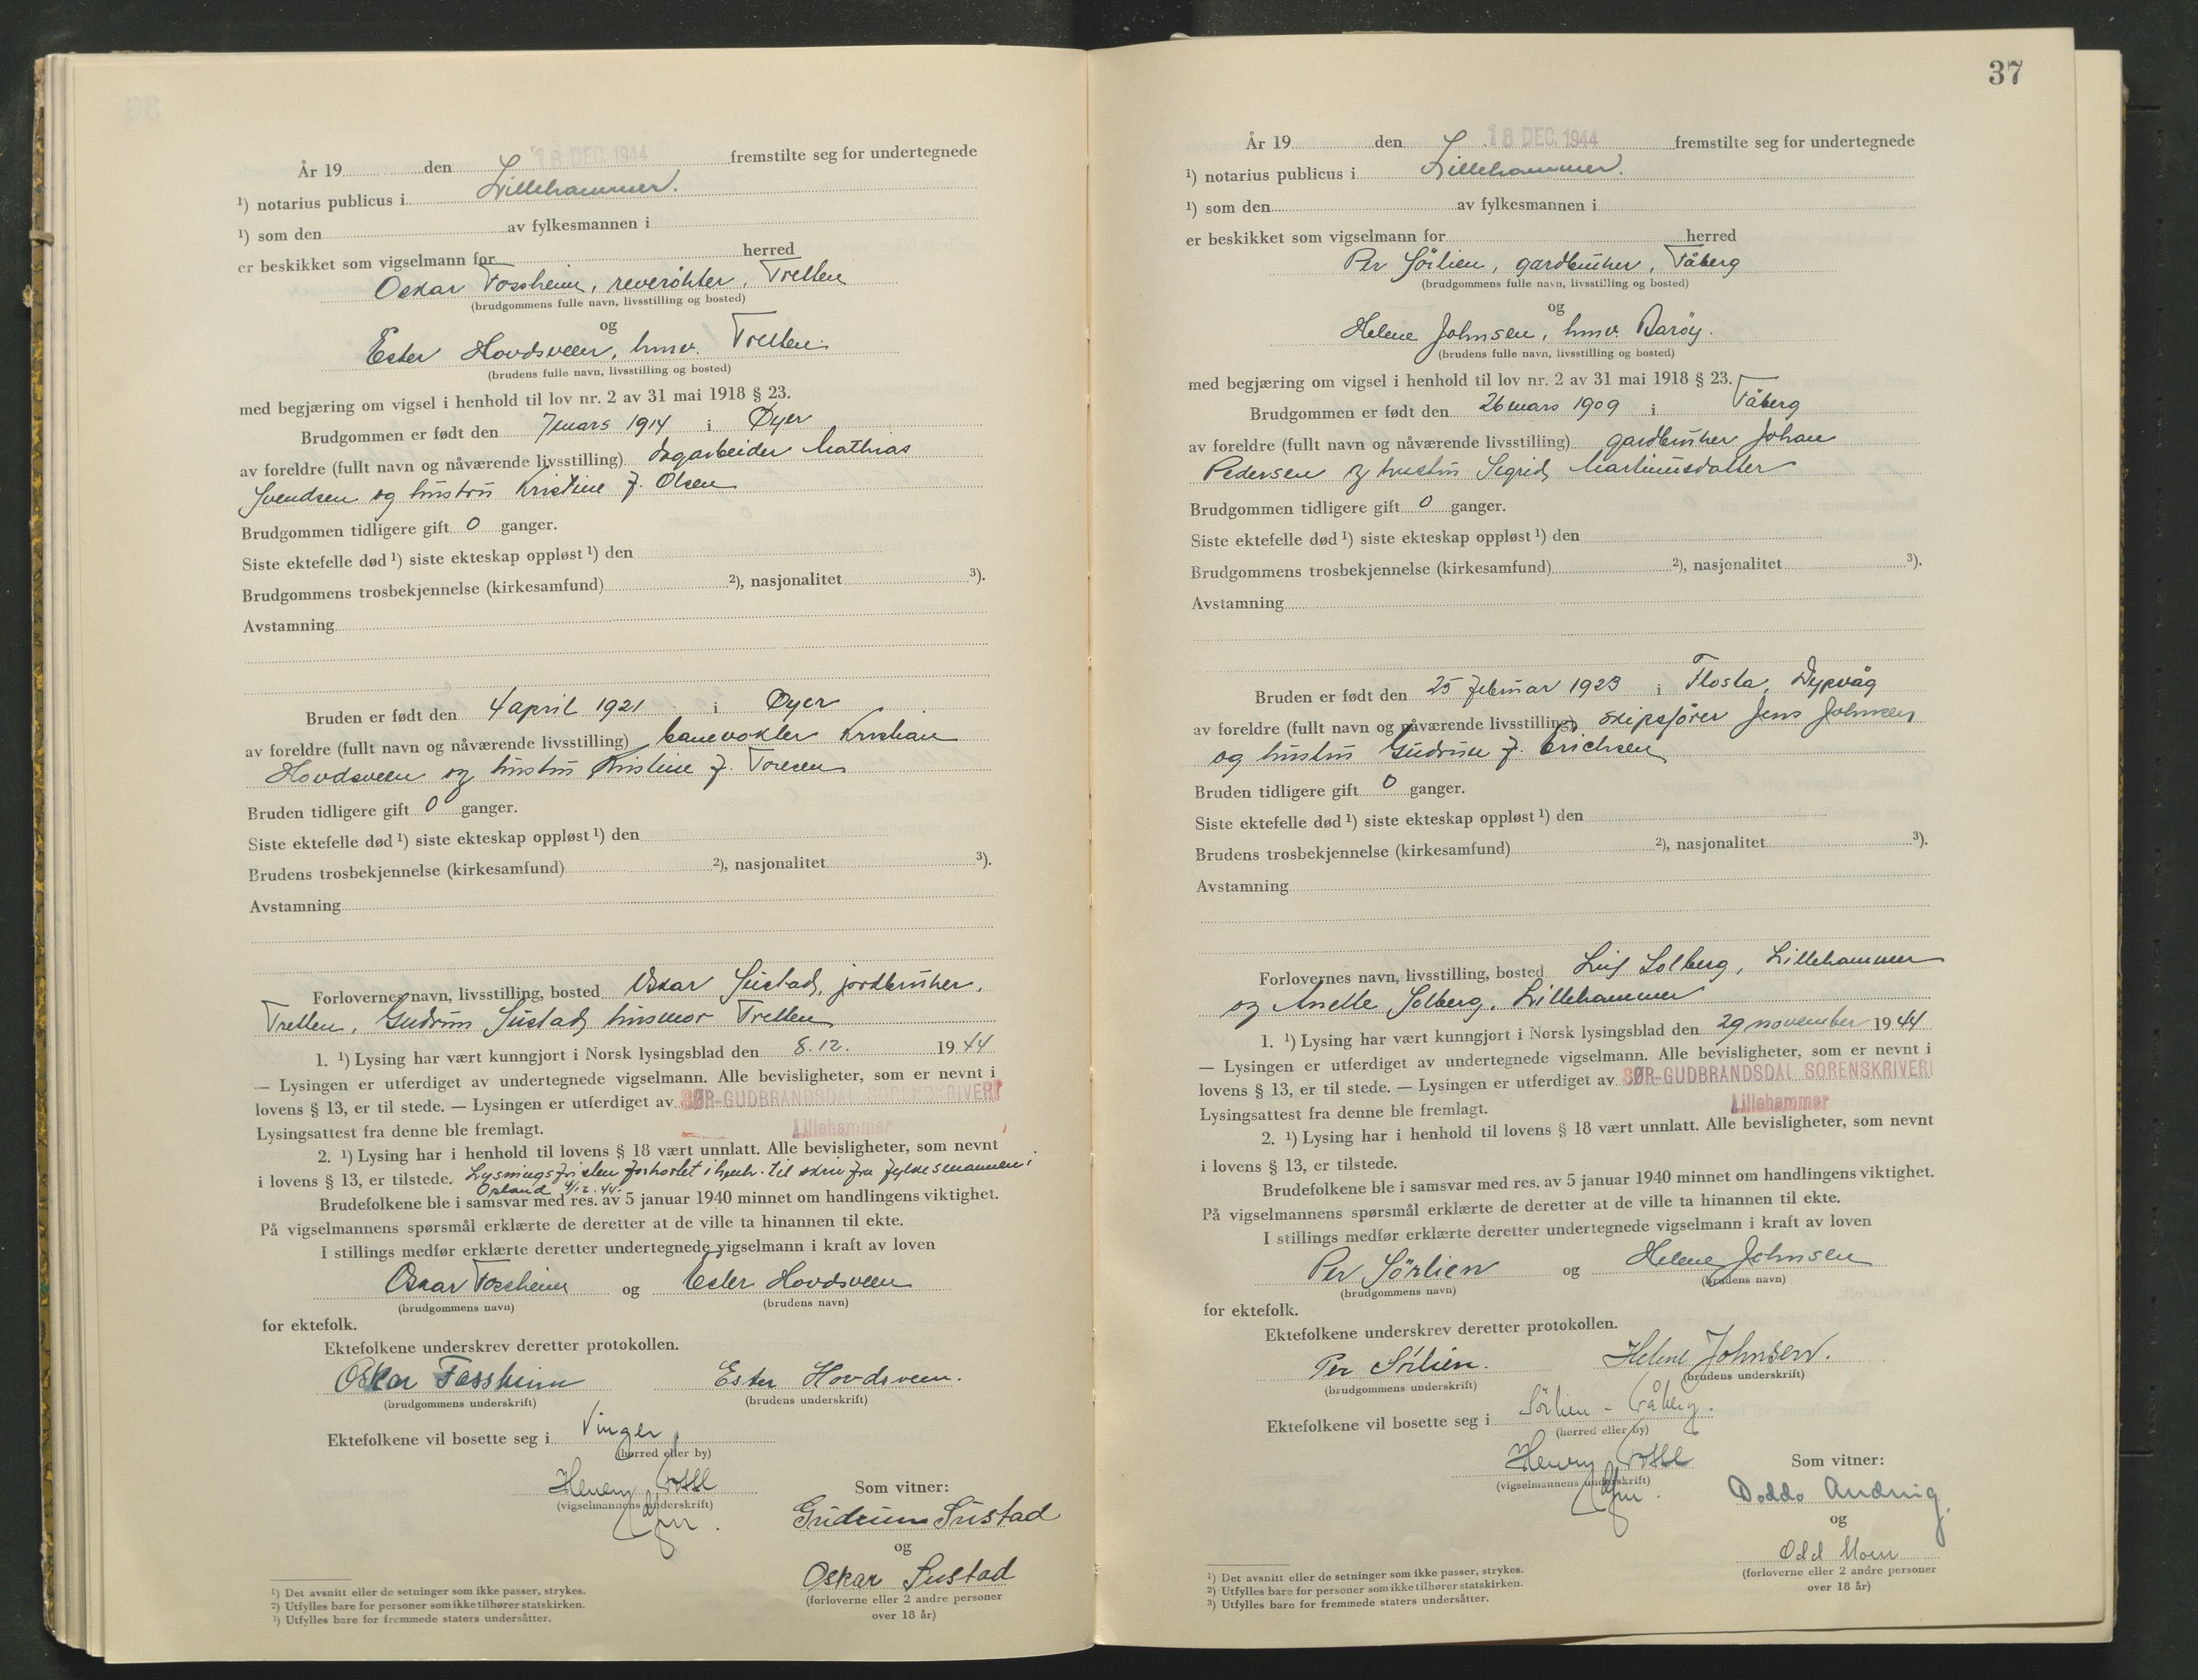 År 19 den 18 DEC. 1944 fremstilte seg for undertegnede
¹) notarius publicus i Lillehammer.
¹) som den av fylkesmannen i
er beskikket som vigselmann for herred
Oskar Fossheim, reverøkter, Tretten
(brudgommens fulle navn, livsstilling og bosted)
og
Ester Hovdsveen, hmv. Tretten.
(brudens fulle navn, livsstilling og bosted)
med begjæring om vigsel i henhold til lov nr. 2 av 31 mai 1918 § 23.
Brudgommen er født den 7 mars 1914 i Øyer
av foreldre (fullt navn og nåværende livsstilling) dagarbeider Mathias
Svendsen og hustru Kristine f. Olsen
Brudgommen tidligere gift 0 ganger.
Siste ektefelle død ¹) siste ekteskap oppløst ¹) den
Brudgommens trosbekjennelse (kirkesamfund) ²), nasjonalitet ³).
Avstamning
Bruden er født den 4 april 1921 i Øyer
av foreldre (fullt navn og nåværende livsstilling) banevokter Kristian
Hovdsveen og hustru Kristine f. Toresen
Bruden tidligere gift 0 ganger.
Siste ektefelle død ¹) siste ekteskap oppløst ¹) den
Brudens trosbekjennelse (kirkesamfund) ²), nasjonalitet ³).
Avstamning
Forlovernes navn, livsstilling, bosted Oskar Sustad, jordbruker,
Tretten, Gudrun Sustad husmor Tretten
1. ¹) Lysing har vært kunngjort i Norsk lysingsblad den 8.12. 1944
— Lysingen er utferdiget av undertegnede vigselmann. Alle bevisligheter, som er nevnt i
lovens § 13, er til stede. — Lysingen er utferdiget av SØR-GUDBRANDSDAL SORENSKRIVERI
Lillehammer
Lysingsattest fra denne ble fremlagt.
2. ¹) Lysing har i henhold til lovens § 18 vært unnlatt. Alle bevisligheter, som nevnt
i lovens § 13, er tilstede. Lysningsfristen forkortet i henh. til skriv fra fylkesmannen i
Opland 4/12.44.
Brudefolkene ble i samsvar med res. av 5 januar 1940 minnet om handlingens viktighet.
På vigselmannens spørsmål erklærte de deretter at de ville ta hinannen til ekte.
I stillings medfør erklærte deretter undertegnede vigselmann i kraft av loven
Oskar Fossheim og Ester Hovdsveen
(brudgommens navn) (brudens navn)
for ektefolk.
Ektefolkene underskrev deretter protokollen.
Oskar Fossheim Ester Hovdsveen.
(brudgommens underskrift) (brudens underskrift)
Ektefolkene vil bosette seg i Vinger
(herred eller by)
Henry
(vigselmannens underskrift)
Som vitner:
Gudrun Sustad
og
Oskar Sustad
(forloverne eller 2 andre personer
over 18 år)
¹) Det avsnitt eller de setninger som ikke passer, strykes.
²) Utfylles bare for personer som ikke tilhører statskirken.
³) Utfylles bare for fremmede staters undersåtter.
37
År 19 den 18 DEC. 1944 fremstilte seg for undertegnede
¹) notarius publicus i Lillehammer.
¹) som den av fylkesmannen i
er beskikket som vigselmann for herred
Per Sörlien, gardbruker, Fåberg
(brudgommens fulle navn, livsstilling og bosted)
og
Helene Johnsen, hmv. Barøy.
(brudens fulle navn, livsstilling og bosted)
med begjæring om vigsel i henhold til lov nr. 2 av 31 mai 1918 § 23.
Brudgommen er født den 26 mars 1909 i Fåberg
av foreldre (fullt navn og nåværende livsstilling) gardbruker Johan
Pedersen og hustru Sigrid Martinusdatter
Brudgommen tidligere gift 0 ganger.
Siste ektefelle død ¹) siste ekteskap oppløst ¹) den
Brudgommens trosbekjennelse (kirkesamfund) ²), nasjonalitet ³).
Avstamning
Bruden er født den 25 februar 1923 i Flosta, Dypvåg
av foreldre (fullt navn og nåværende livsstilling) skipsfører Jens Johnsen
og hustru Gudrun f. Erichsen
Bruden tidligere gift 0 ganger.
Siste ektefelle død ¹) siste ekteskap oppløst ¹) den
Brudens trosbekjennelse (kirkesamfund) ²), nasjonalitet ³).
Avstamning
Forlovernes navn, livsstilling, bosted Leif Solberg, Lillehammer
og Anette Solberg, Lillehammer
1. ¹) Lysing har vært kunngjort i Norsk lysingsblad den 29 november 1944
— Lysingen er utferdiget av undertegnede vigselmann. Alle bevisligheter, som er nevnt i
lovens § 13, er til stede. — Lysingen er utferdiget av SØR-GUDBRANDSDAL SORENSKRIVERI
Lillehammer
Lysingsattest fra denne ble fremlagt.
2. ¹) Lysing har i henhold til lovens § 18 vært unnlatt. Alle bevisligheter, som nevnt
i lovens § 13, er tilstede.
Brudefolkene ble i samsvar med res. av 5 januar 1940 minnet om handlingens viktighet.
På vigselmannens spørsmål erklærte de deretter at de ville ta hinannen til ekte.
I stillings medfør erklærte deretter undertegnede vigselmann i kraft av loven
Per Sörlien og Helene Johnsen
(brudgommens navn) (brudens navn)
for ektefolk.
Ektefolkene underskrev deretter protokollen.
Per Sörlien. Helene Johnsen.
(brudgommens underskrift) (brudens underskrift)
Ektefolkene vil bosette seg i Sörlien - Fåberg.
(herred eller by)
Henry
(vigselmannens underskrift)
Som vitner:
Doddo
og
Odd Moen
(forloverne eller 2 andre personer
over 18 år)
¹) Det avsnitt eller de setninger som ikke passer, strykes.
²) Utfylles bare for personer som ikke tilhører statskirken.
³) Utfylles bare for fremmede staters undersåtter.